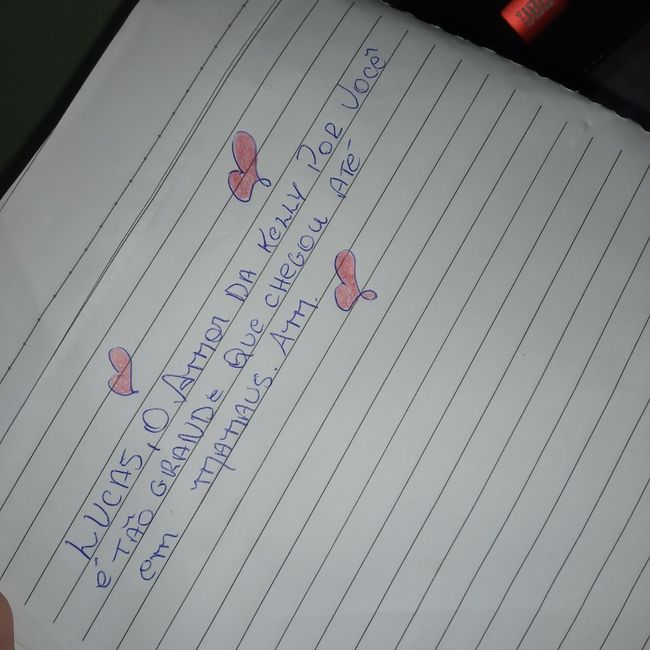 LUCAS, O AMOR DA KELLY POR VOCÊ
É TÃO GRANDE QUE CHEGOU ATÉ
EM MANAUS. AM.